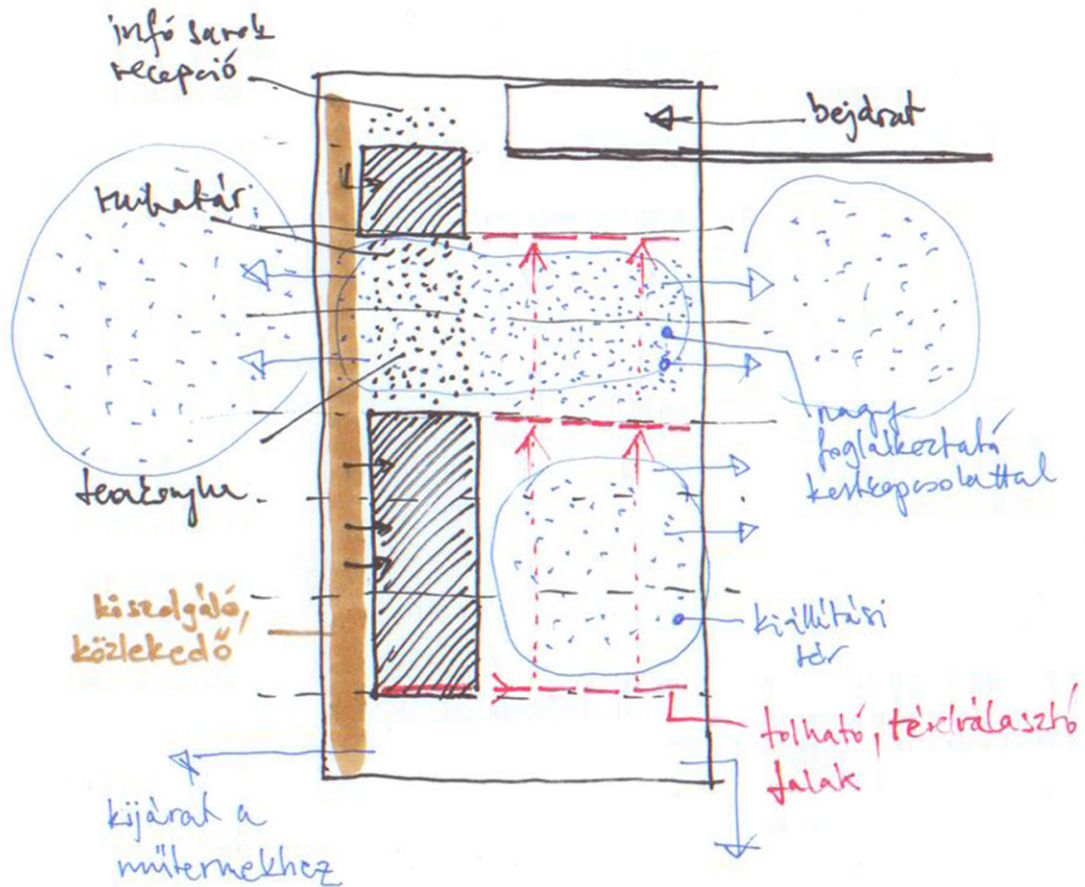 infó sarok
recepció
bejárat
ruhatár
nagy
foglalkoztató
kertkapcsolattal
teakonyha
kiszolgáló,
közlekedő
kiállítási
tér
tolható, térelválasztó
falak
kijárat a
műtermekhez